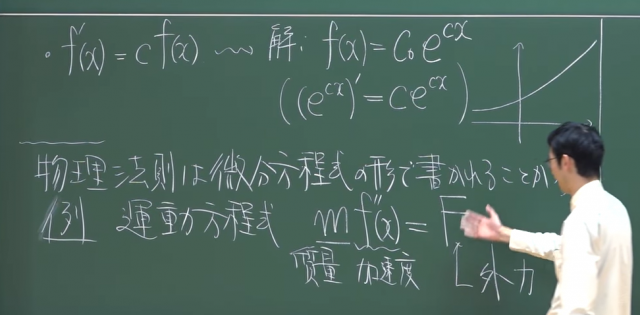 ・f'(x) = c f(x) 〰 解: f(x) = C₀e^{cx}
((e^{cx})' = ce^{cx})
物理法則は微分方程式の形で書かれることが
例 運動方程式 m f''(x) = F
質量 加速度 外力